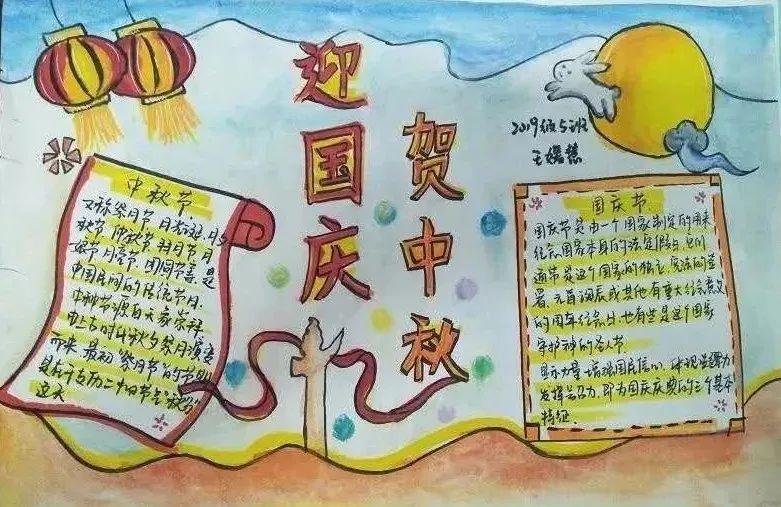 迎国庆
贺中秋
2019级5班
中秋节
又称祭月节、月光诞、月夕
秋节、仲秋节、拜月节、月
娘节、月亮节、团圆节等,是
中国民间的传统节日。
中秋节源自天象崇拜,
由上古时代秋夕祭月演变
而来。最初“祭月节”的节期
是在干支历二十四节气“秋分”
这天
国庆节
国庆节是由一个国家制定的用来
纪念国家本身的法定假日,它们
通常是这个国家的独立、宪法的签
署、元首诞辰或其他有重大纪念意义
的周年纪念日,也有些是这个国家
守护神的圣人节。
显示力量、增强国民信心,体现凝聚力,
发挥号召力,即为国庆庆典的三个基本
特征。